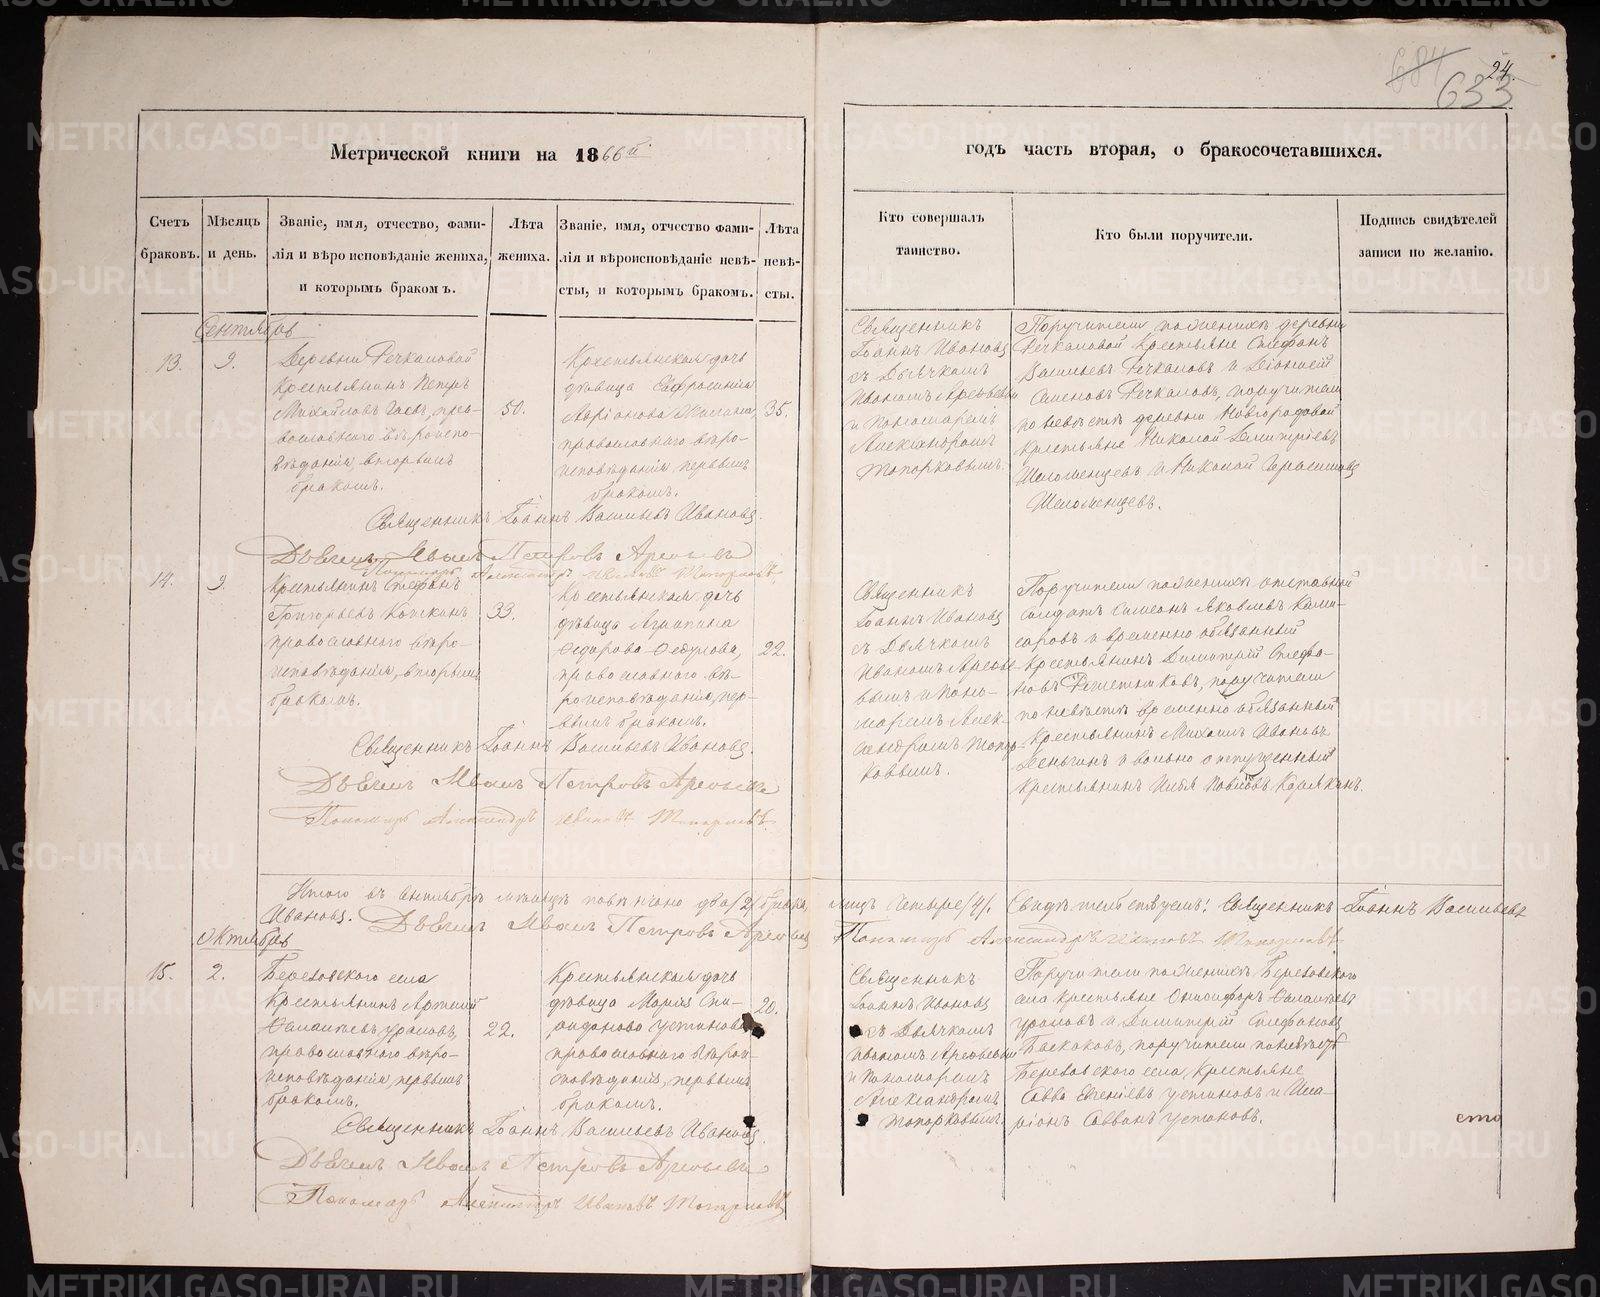 24.
684
633
Метрической книги на 1866й
годъ часть вторая, о бракосочетавшихся.
Счетъ браковъ.
Мѣсяцъ и день.
Званіе, имя, отчество, фами-
лія и вѣроисповѣданіе жениха,
и которымъ бракомъ.
Лѣта
жениха.
Званіе, имя, отчество фами-
лія и вѣроисповѣданіе невѣ-
сты, и которымъ бракомъ.
Лѣта
невѣ-
сты.
Кто совершалъ
таинство.
Кто были поручители.
Подпись свидѣтелей
записи по желанію.
Сентябрь
13.
9.
Деревни Речкаловой
крестьянинъ Петръ
Михайловъ пра-
вославнаго вѣроиспо-
вѣданія, вторымъ
бракомъ.
50.
Крестьянская дочь
дѣвица Евфросинія
Ларіонова
православнаго вѣро-
исповѣданія первымъ
бракомъ.
35.
Священникъ
Іоаннъ Ивановъ
съ Дьячкомъ
Иваномъ Арефьевымъ
и Пономаремъ
Александромъ
Топорковымъ.
Поручители по женихѣ деревни
Речкаловой крестьяне Стефанъ
Васильевъ Речкаловъ и Діонисій
Семеновъ Речкаловъ, поручители
по невѣстѣ деревни Новгородовой
крестьяне Николай Димитріевъ
Шеломенцевъ и Николай Герасимовъ
Шеломенцевъ.
Священникъ Іоаннъ Васильевъ Ивановъ.
Дьячекъ Иванъ Петровъ Арефьевъ
Пономарь Александръ Ивановъ Топорковъ
14.
9.
Крестьянинъ Стефанъ
Григорьевъ
православнаго вѣро-
исповѣданія, вторымъ
бракомъ.
33.
Крестьянская дочь
дѣвица Агрипина
Федорова
православнаго вѣ-
роисповѣданія, пер-
вымъ бракомъ.
22.
Священникъ
Іоаннъ Ивановъ
съ Дьячкомъ
Иваномъ Арефье-
вымъ и Поно-
маремъ Алек-
сандромъ Топор-
ковымъ.
Поручители по женихѣ отставный
солдатъ Симеонъ Яковлевъ
и временно обязанный
крестьянинъ Димитрій Стефа-
новъ Решетниковъ, поручители
по невѣстѣ временно обязанный
крестьянинъ Михаилъ Ивановъ
Деньгинъ и вольно отпущенный
крестьянинъ Илья Павловъ
Священникъ Іоаннъ Васильевъ Ивановъ.
Дьячекъ Иванъ Петровъ Арефьевъ
Пономарь Александръ Ивановъ Топорковъ
Итого въ Сентябрѣ мѣсяцѣ повѣнчано два /2/ брака, лицъ четыре /4/. Свидѣтельствуемъ: Священникъ Іоаннъ Васильевъ
Ивановъ. Дьячекъ Иванъ Петровъ Арефьевъ Пономарь Александръ Ивановъ Топорковъ
Октябрь
15.
2.
Березовскаго села
крестьянинъ Артемій
православнаго вѣро-
исповѣданія первымъ
бракомъ.
22.
Крестьянская дочь
дѣвица Марія Спи-
ридонова Устинова
православнаго вѣрои-
сповѣданія, первымъ
бракомъ.
20.
Священникъ
Іоаннъ Ивановъ
съ Дьячкомъ
Иваномъ Арефьевымъ
и Пономаремъ
Александромъ
Топорковымъ.
Поручители по женихѣ Березовскаго
села крестьяне Онисифоръ
и Димитрій Стефановъ
Баскаковъ, поручители по невѣстѣ
Березовскаго села, крестьяне
Савва Евгеніевъ Устиновъ и Ила-
ріонъ Саввинъ Устиновъ.
сто
Священникъ Іоаннъ Васильевъ Ивановъ.
Дьячекъ Иванъ Петровъ Арефьевъ
Пономарь Александръ Ивановъ Топорковъ
METRIKI.GASO-URAL.RU